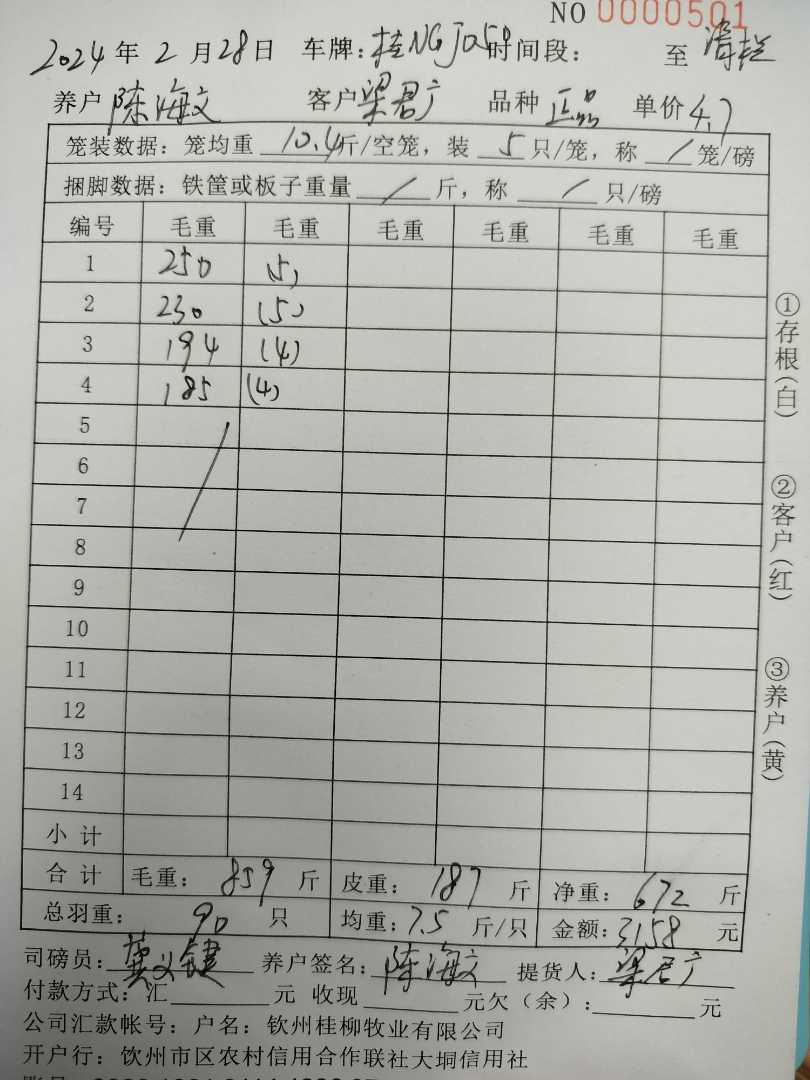 NO 0000501
2024年2月28日 车牌:桂NGJ050 时间段: 至 清栏
养户 陈海文 客户 梁君广 品种 正品 单价 4.7
笼装数据: 笼均重 10.4斤/空笼, 装 5 只/笼, 称 / 笼/磅
捆脚数据: 铁筐或板子重量 / 斤, 称 / 只/磅
编号 毛重 毛重 毛重 毛重 毛重 毛重
1 250 (5)
2 230 (5)
3 194 (4)
4 185 (4)
5
6
7
8
9
10
11
12
13
14
小计
合计 毛重: 859 斤 皮重: 187 斤 净重: 672 斤
总羽重: 90 只 均重: 7.5 斤/只 金额: 3158 元
司磅员: 龚义键 养户签名: 陈海文 提货人: 梁君广
付款方式: 汇 元 收现 元欠(余): 元
公司汇款帐号: 户名: 钦州桂柳牧业有限公司
开户行: 钦州市区农村信用合作联社大垌信用社
①存根(白)
②客户(红)
③养户(黄)